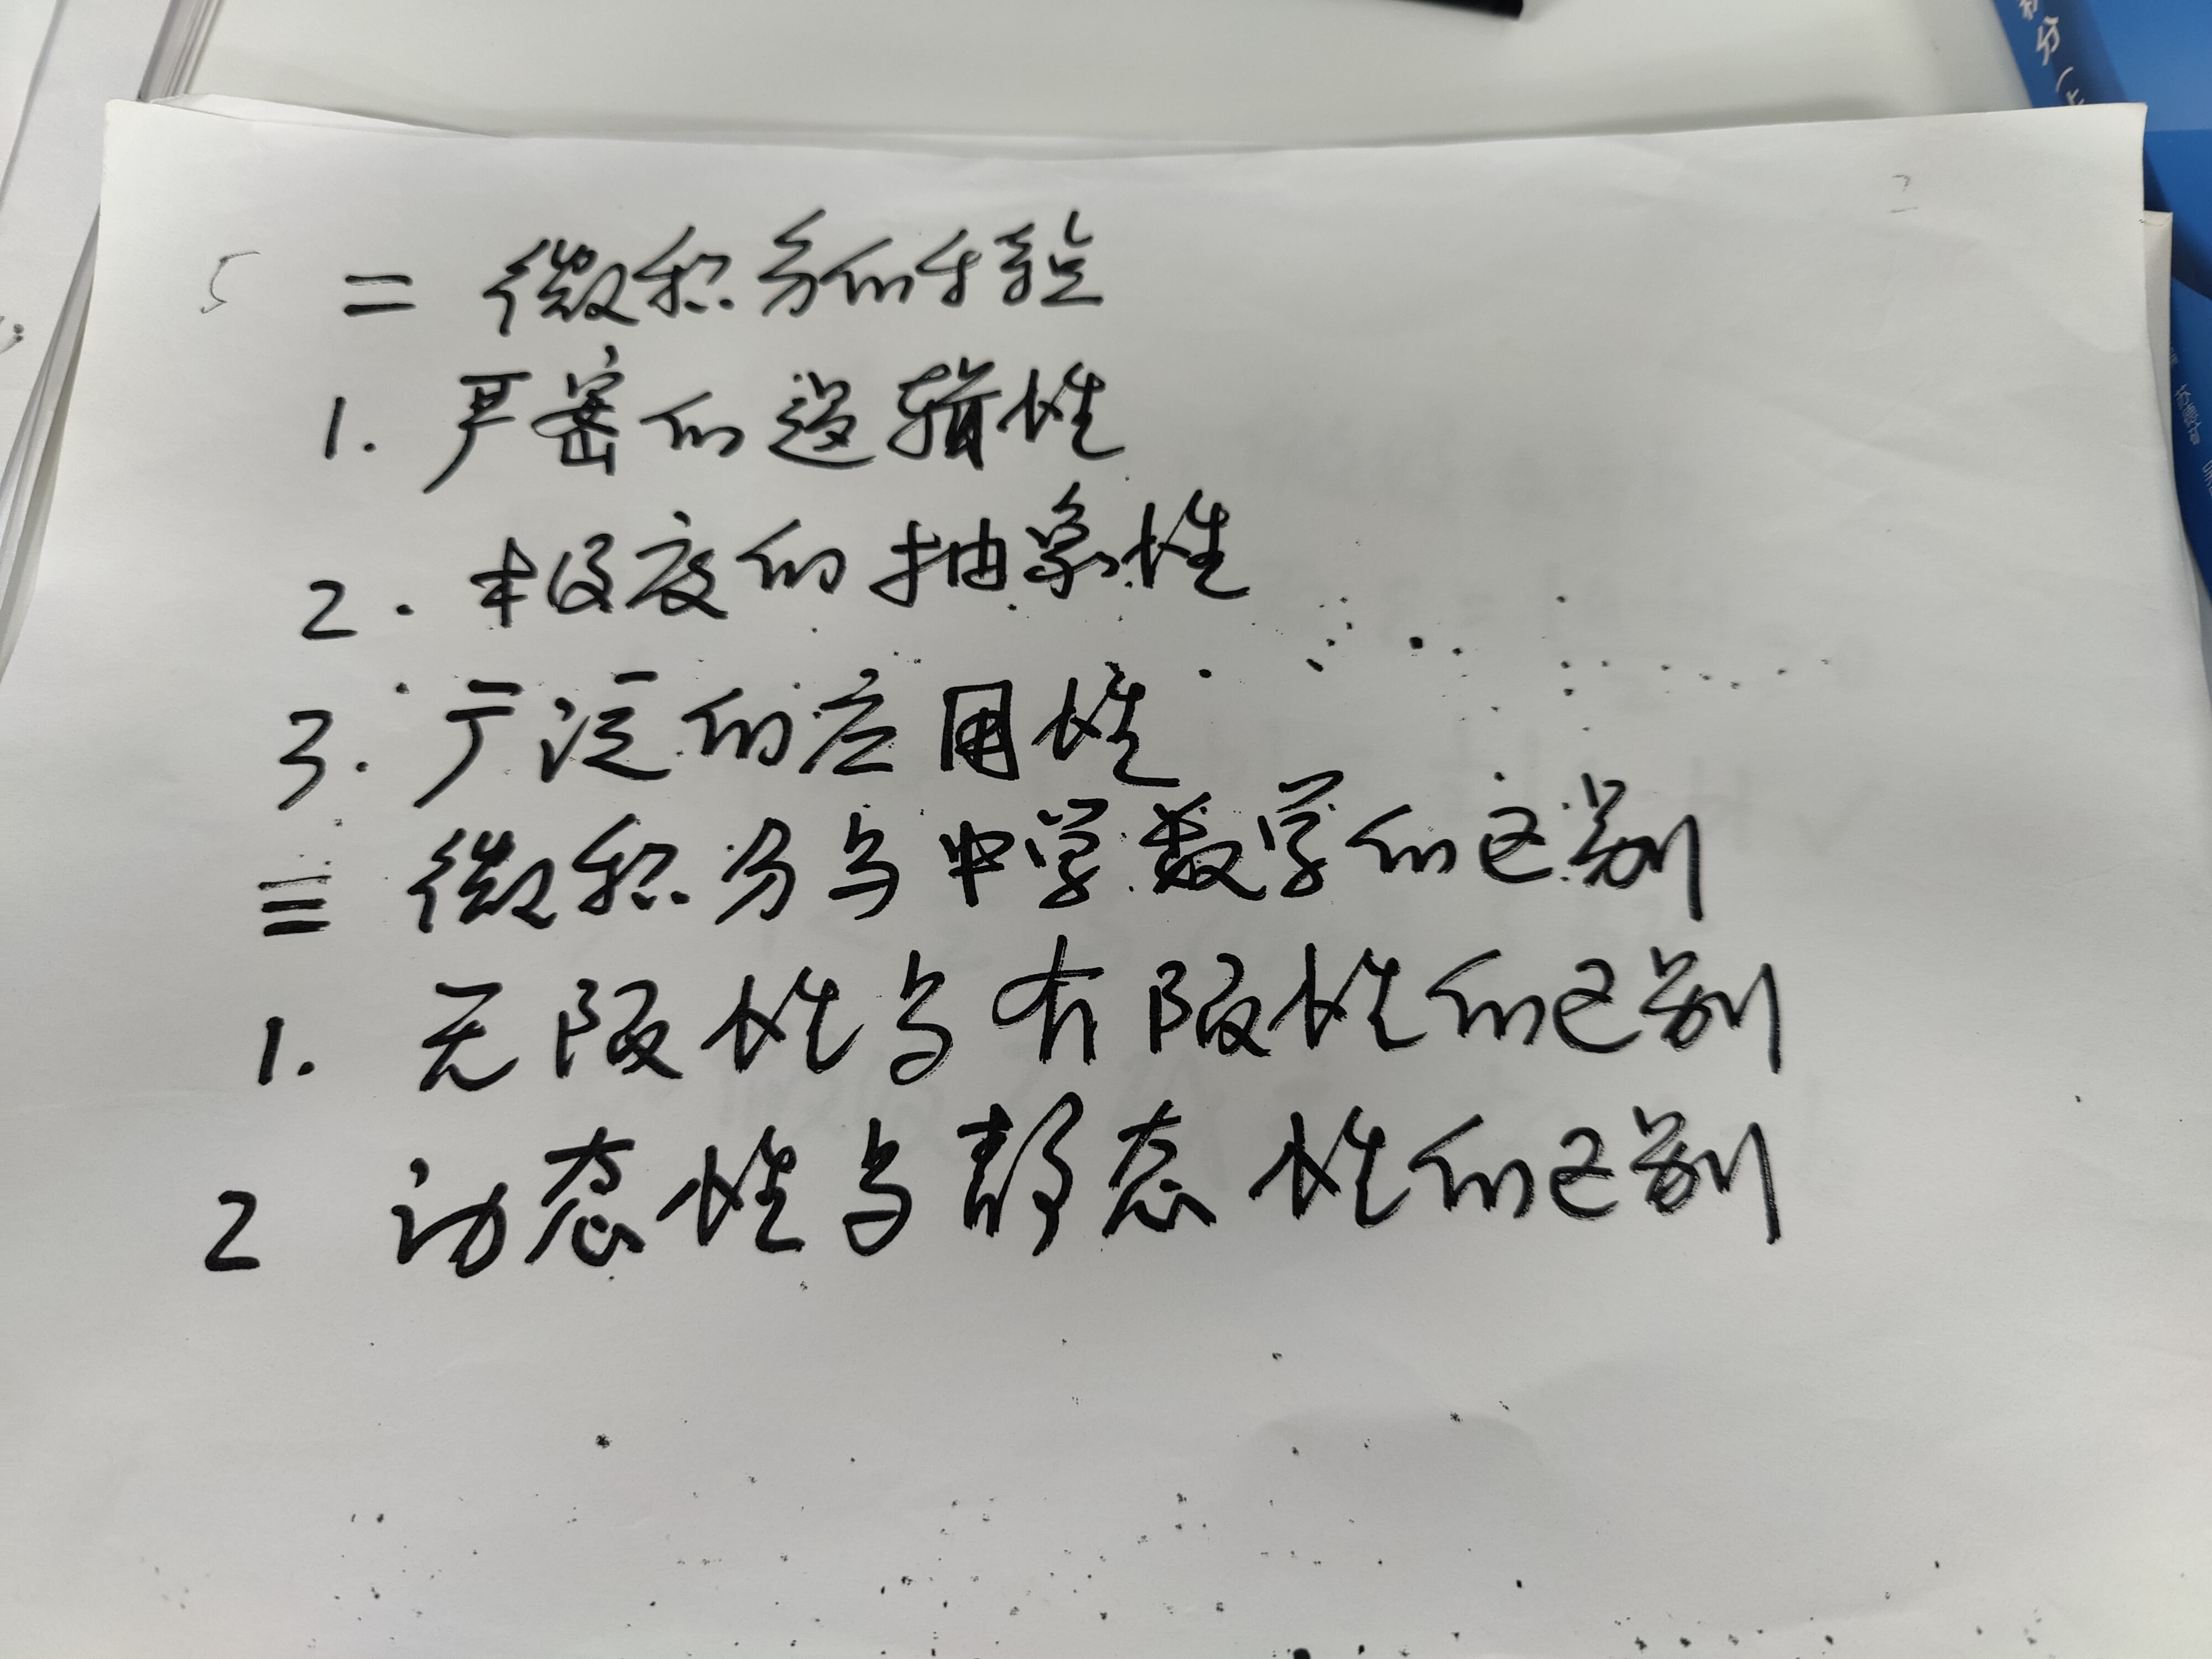 5 二 微积分的特点
1. 严密的逻辑性
2. 极度的抽象性
3. 广泛的应用性
三 微积分与中学数学的区别
1. 无限性与有限性的区别
2 动态性与静态性的区别
积分(上